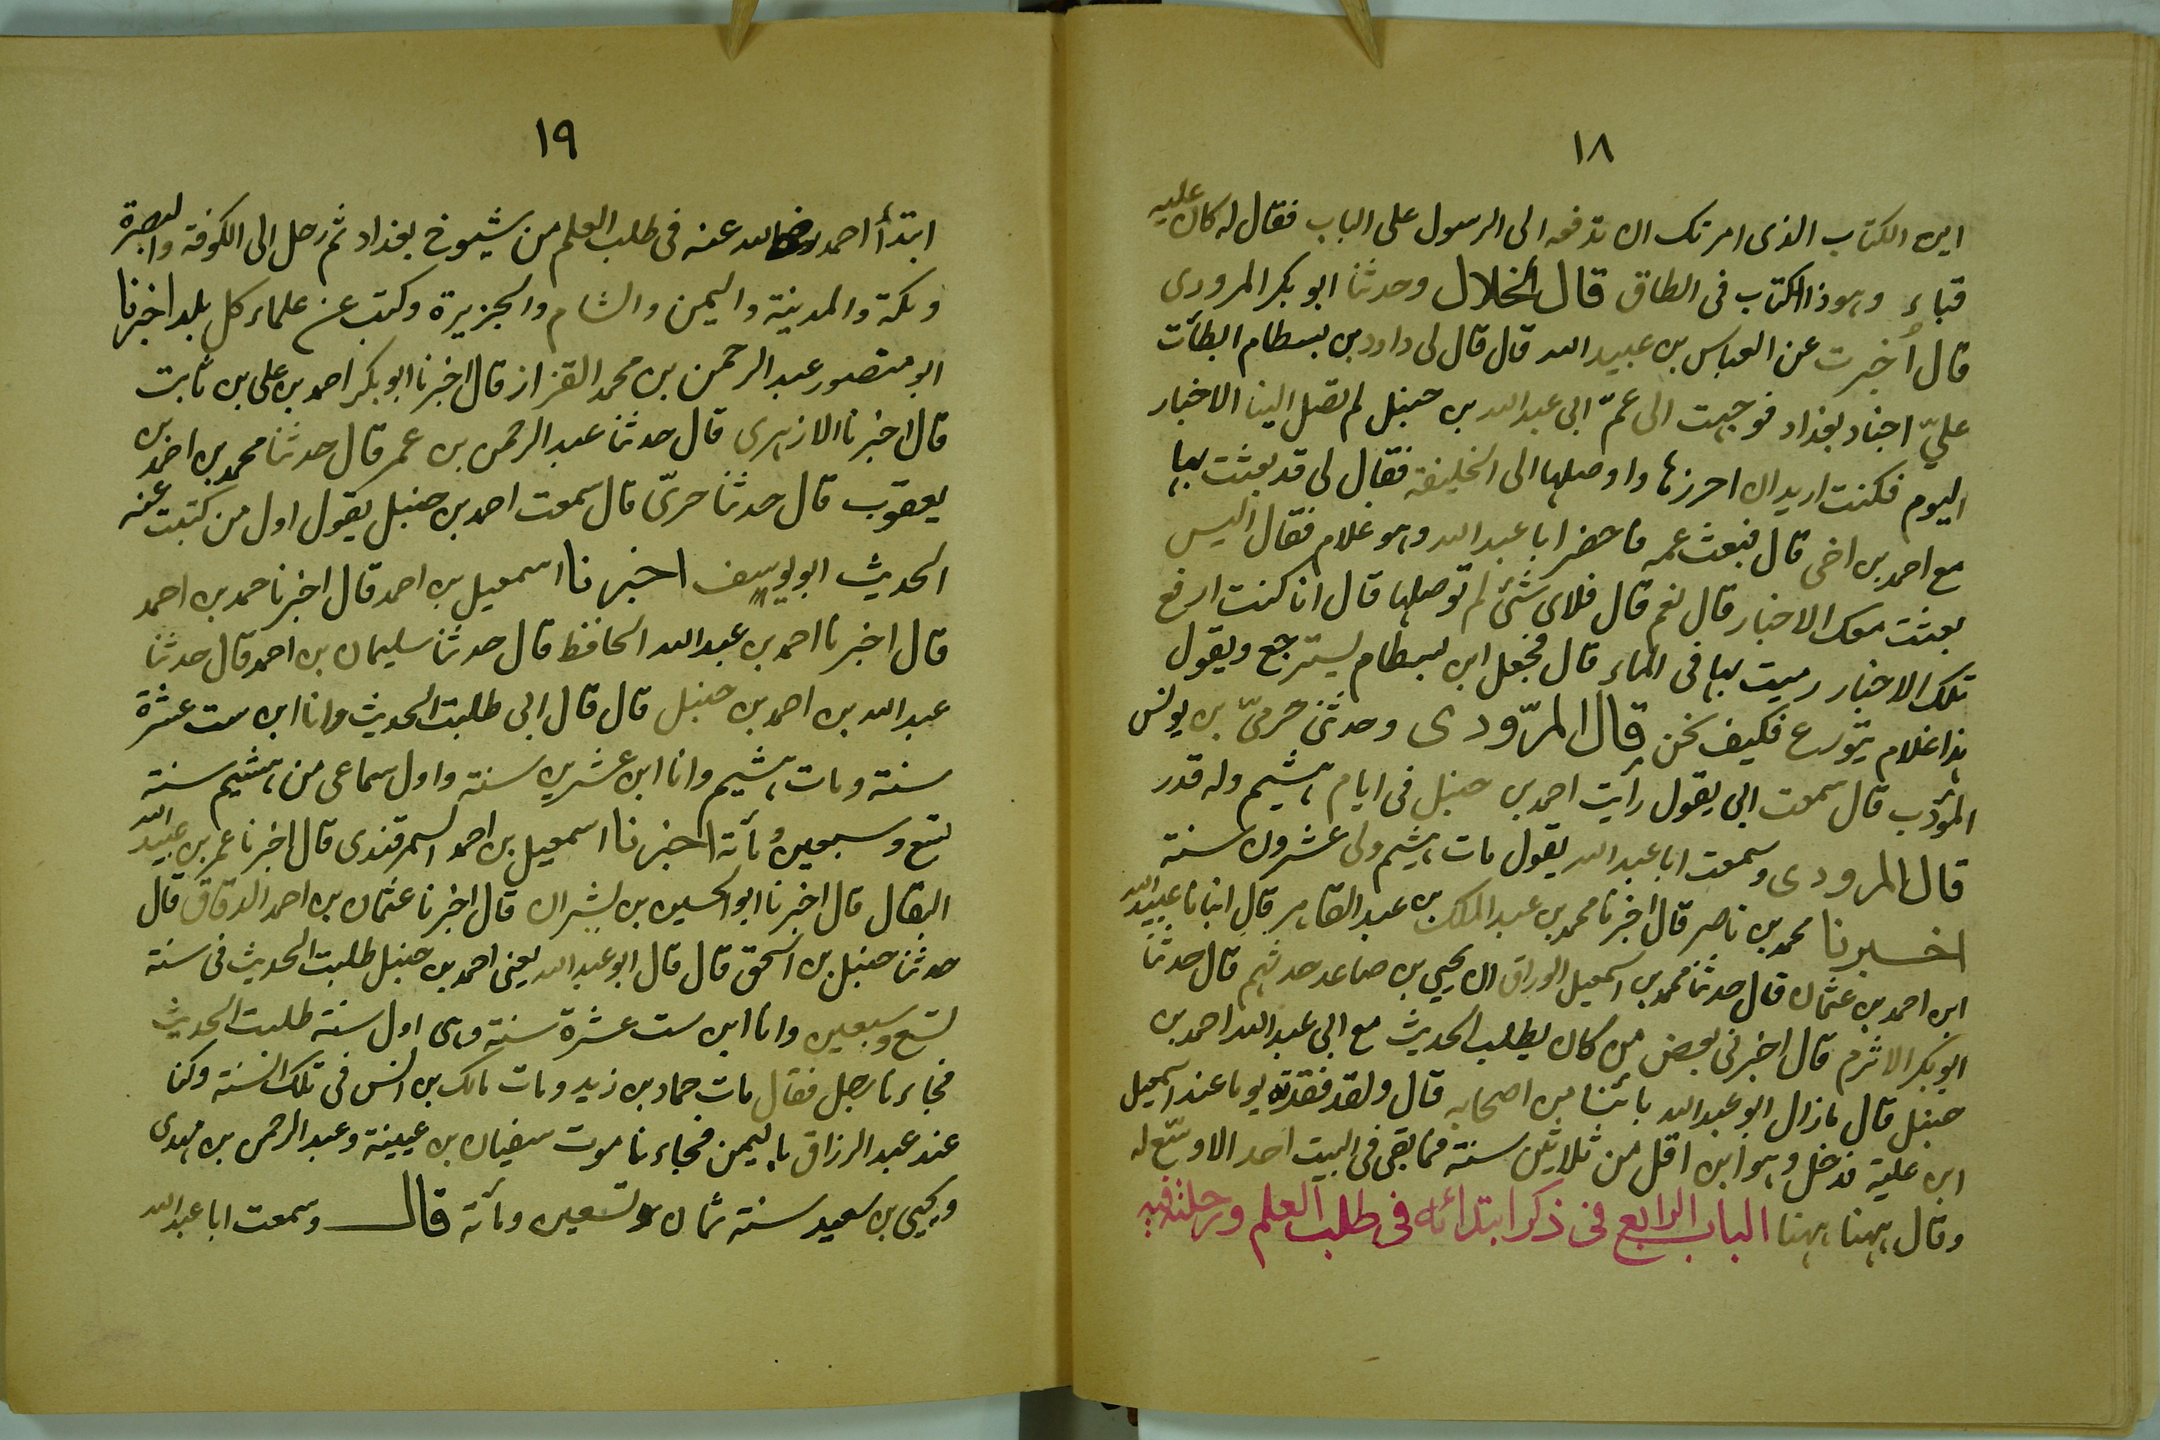 ١٨
اين الكتاب الذى امرتك ان تدفعه الى الرسول على الباب فقال له كان عليه
قباء وهوذا الكتاب فى الطاق قال الخلال وحدثنا ابو بكر المرودى
قال أُخبرت عن العباس بن عبيد الله قال قال لى داود بن بسطام ابطأت
عليّ اخبار بغداد فوجهت الى عمّ ابى عبد الله بن حنبل لم تصل الينا الاخبار
اليوم فكنت اريد ان احرزها واوصلها الى الخليفة فقال لى قد بعثت بها
مع احمد بن اخى قال فبعث عمه فاحضر ابا عبد الله وهو غلام فقال أليس
بعثت معك الاخبار قال نعم قال فلاى شئ لم توصلها قال انا كنت ارفع
تلك الاخبار رميت بها فى الماء قال فجعل ابن بسطام يسترجع ويقول
هذا غلام يتورع فكيف نحن قال المرّودى وحدثنى حرمىّ بن يونس
المؤدب قال سمعت ابى يقول رأيت احمد بن حنبل فى ايام هشيم وله قدر
قال المرودى وسمعت ابا عبد الله يقول مات هشيم ولى عشرون سنة
اخبرنا محمد بن ناصر قال اخبرنا محمد بن عبد الملك بن عبد القاهر قال انبانا عبيد الله
ابن احمد بن عثمان قال حدثنا محمد بن اسمعيل الوراق ان يحيى بن صاعد حدثهم قال حدثنا
ابو بكر الاثرم قال اخبرنى بعض من كان يطلب الحديث مع ابى عبد الله احمد بن
حنبل قال مازال ابو عبد الله بائنا من اصحابه قال ولقد فقدته يوما عند اسمعيل
ابن علية فدخل وهو ابن اقل من ثلاثين سنة فما بقى فى البيت احد الا وسّع له
وقال ههنا ههنا الباب الرابع فى ذكر ابتدائه فى طلب العلم ورحلته فيه
١٩
ابتدأ احمد رضى الله عنه فى طلب العلم من شيوخ بغداد ثم رحل الى الكوفة والبصرة
ومكة والمدينة واليمن والشام والجزيرة وكتب عن علماء كل بلد اخبرنا
ابو منصور عبد الرحمن بن محمد القزاز قال اخبرنا ابو بكر احمد بن على بن ثابت
قال اخبرنا الازهرى قال حدثنا عبد الرحمن بن عمر قال حدثنا محمد بن احمد بن
يعقوب قال حدثنا جدّى قال سمعت احمد بن حنبل يقول اول من كتبت عنه
الحديث ابو يوسف اخبرنا اسمعيل بن احمد قال اخبرنا حمد بن احمد
قال اخبرنا احمد بن عبد الله الحافظ قال حدثنا سليمان بن احمد قال حدثنا
عبد الله بن احمد بن حنبل قال قال ابى طلبت الحديث وانا ابن ست عشرة
سنة ومات هشيم وانا ابن عشرين سنة واول سماعى من هشيم سنة
تسع وسبعين ومائة اخبرنا اسمعيل بن احمد السمرقندى قال اخبرنا عمر بن عبيد الله
البقال قال اخبرنا ابو الحسين بن بشران قال اخبرنا عثمان بن احمد الدقاق قال
حدثنا حنبل بن اسحق قال قال ابو عبد الله يعنى احمد بن حنبل طلبت الحديث فى سنة
تسع وسبعين وانا ابن ست عشرة سنة وهى اول سنة طلبت الحديث
فجاءنا رجل فقال مات حماد بن زيد ومات مالك بن انس فى تلك السنة وكنا
عند عبد الرزاق باليمن فجاءنا موت سفيان بن عيينة وعبد الرحمن بن مهدى
ويحيى بن سعيد سنة ثمان وتسعين ومائة قال وسمعت ابا عبد الله